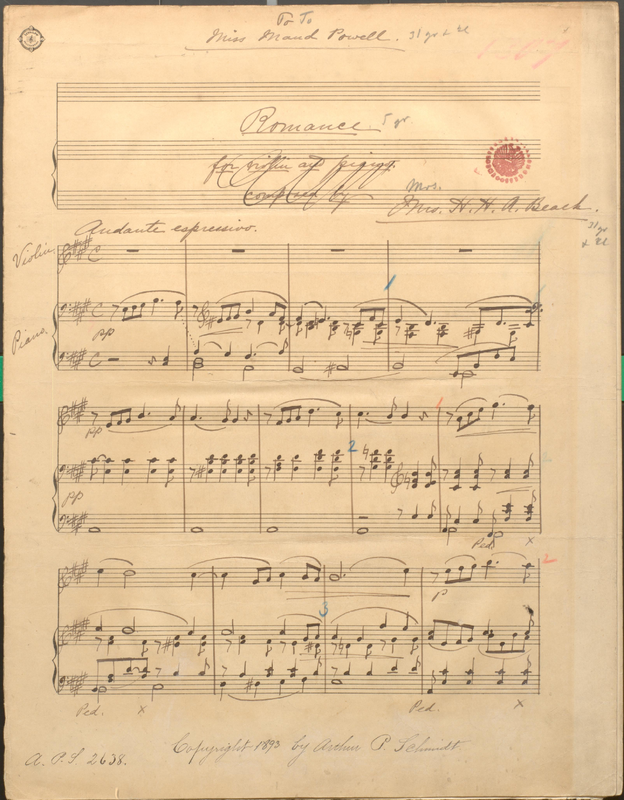 To To
Miss Maud Powell. 31 gr + cl
Romance 5 gr
for violin and piano.
composed by Mrs.
Mrs. H. H. A. Beach.
31 gr
+ cl
Andante espressivo.
Violin.
Piano.
pp
1
pp
pp
2
1
Ped. x
2
p
3
Ped. x Ped. x
Copyright 1893 by Arthur P. Schmidt.
A. P. S 2638.